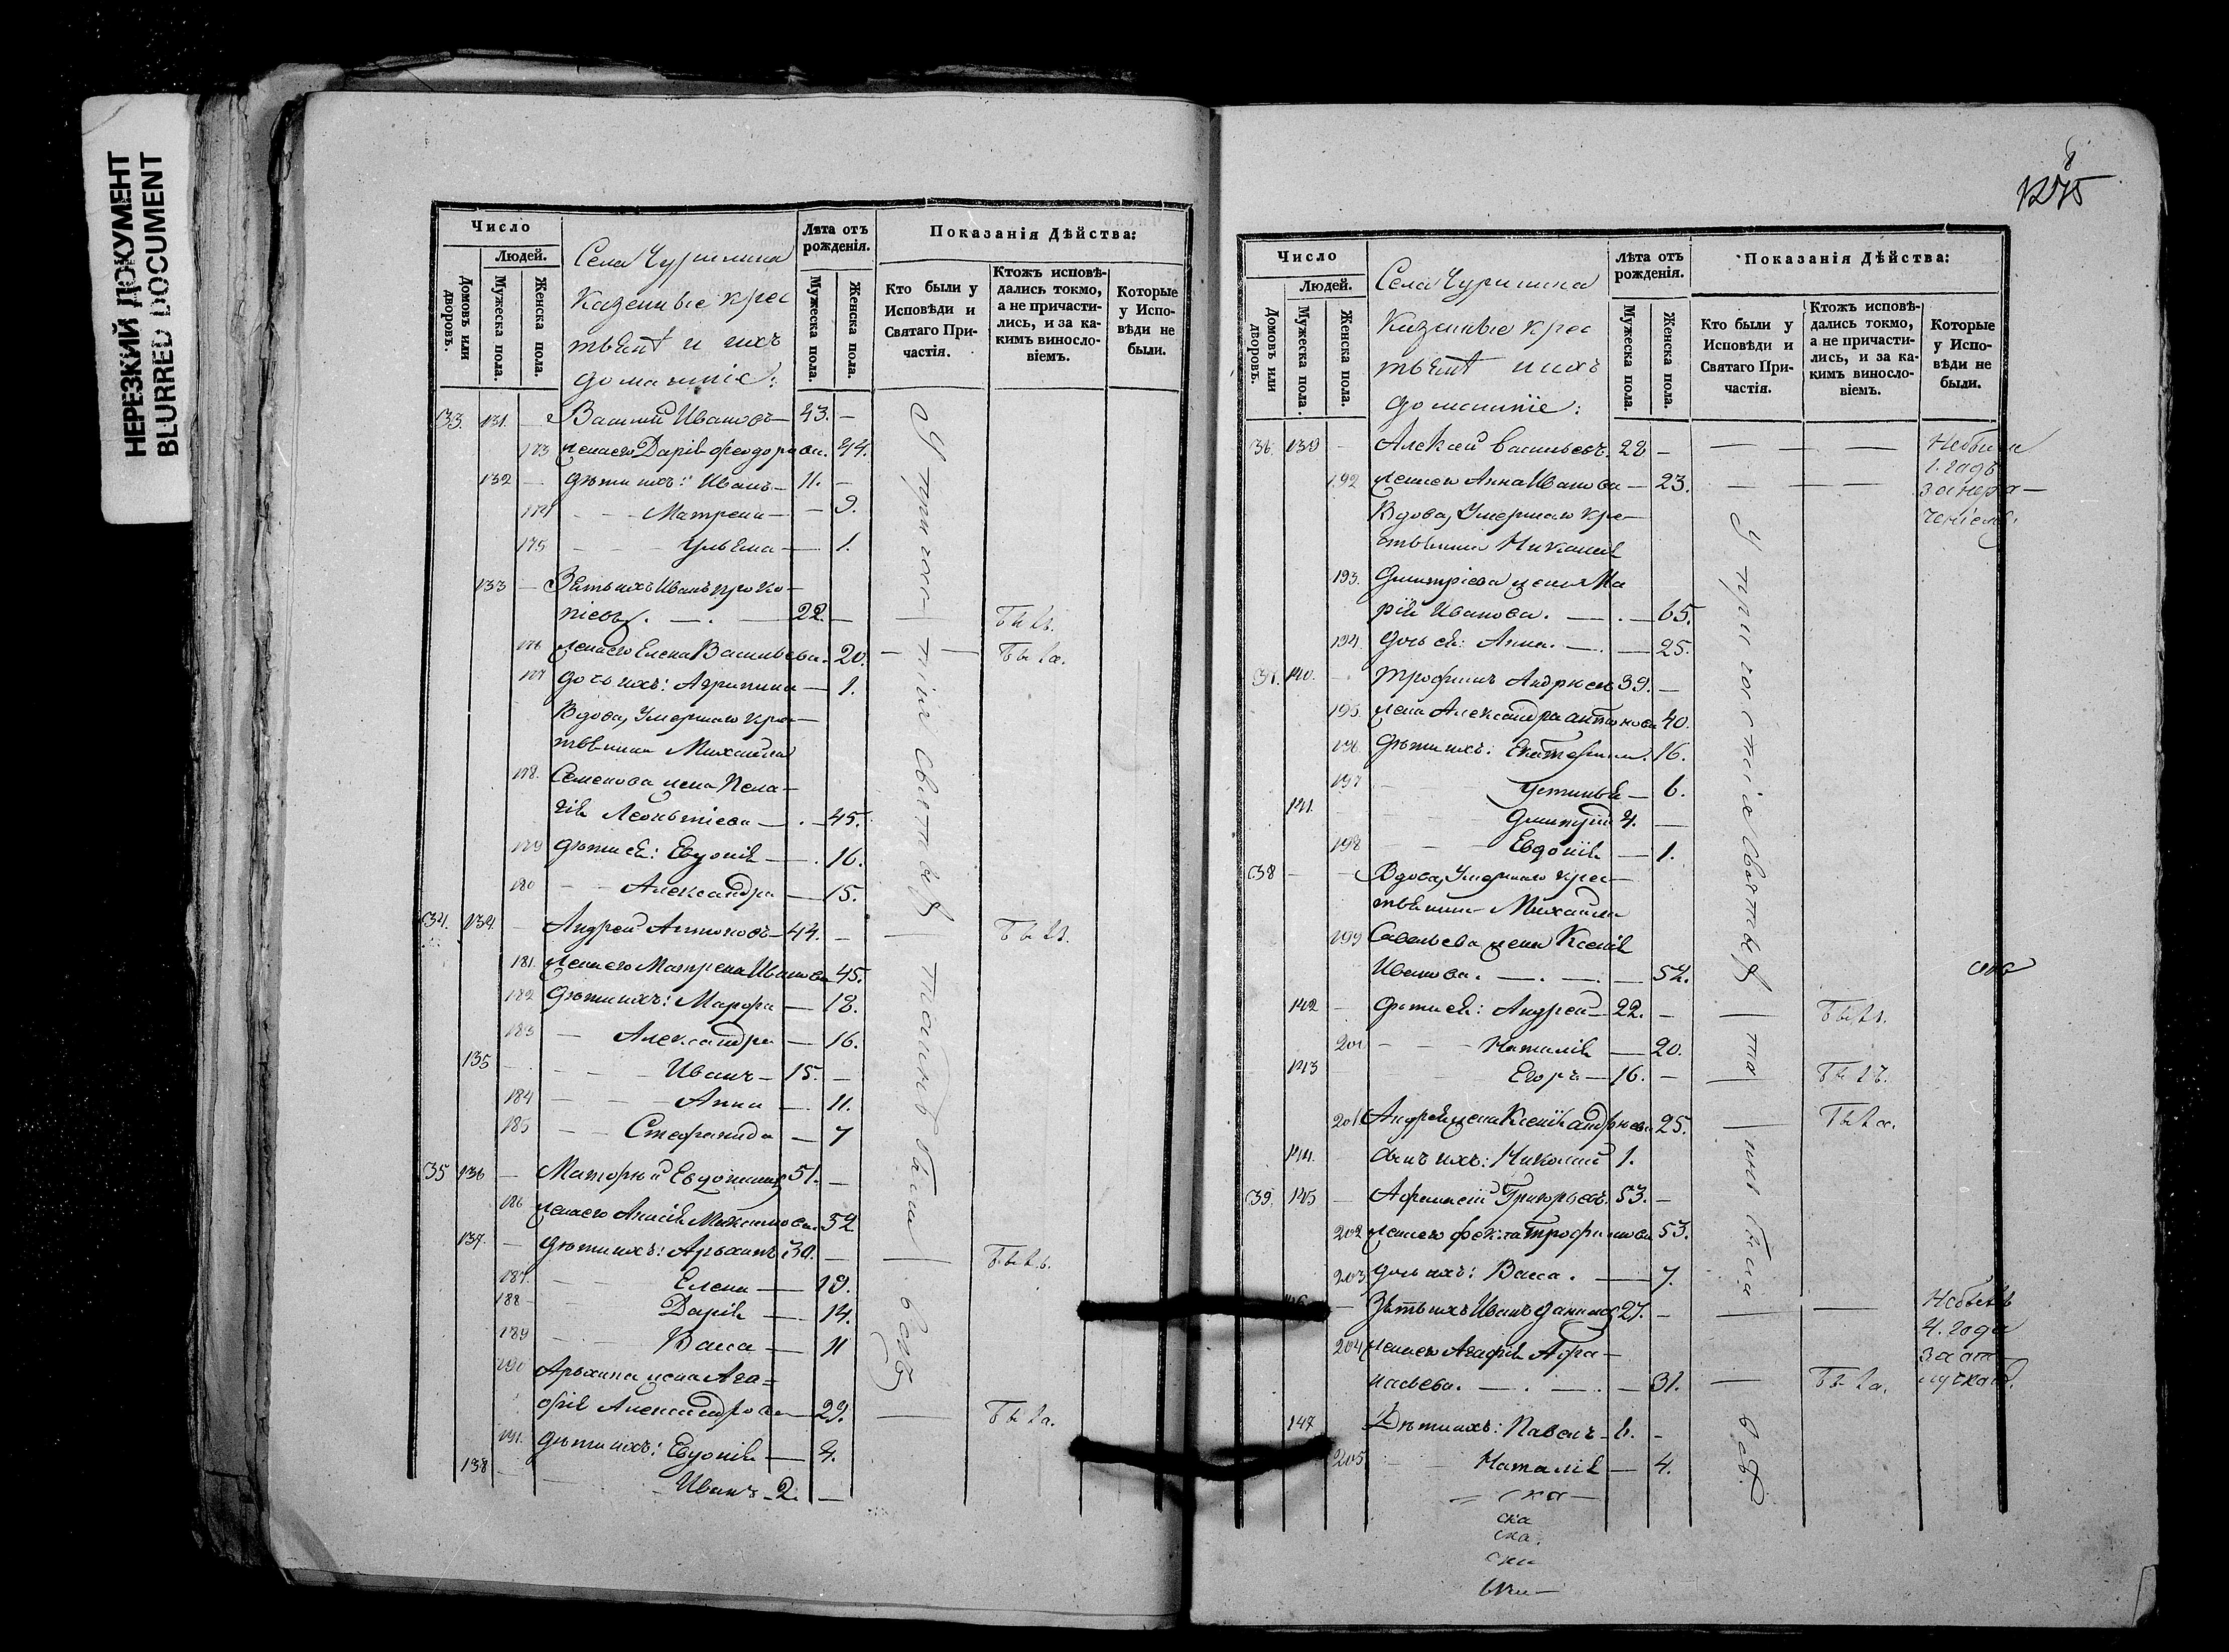 НЕРЕЗКИЙ ДОКУМЕНТ
BLURRED DOCUMENT
Число
Людей.
Домовъ или дворовъ.
Мужеска пола.
Женска пола.
Села Чуришина
Казенные крес
тьяне и ихъ
домашніе:
Лѣта отъ рожденія.
Мужеска пола.
Женска пола.
Показанія Дѣйства:
Кто были у Исповѣди и Святаго При-частія.
Ктожъ исповѣ-дались токмо, а не причасти-лись, и за ка-кимъ винословіемъ.
Которые у Испо-вѣди не были.
33. 131. — Василий Ивановъ — 43. —
173 жена его Дарія Феодорова. 44.
132 — дѣти ихъ: Иванъ — 11. —
174 — — Матрена — — 9.
175 — — Ульяна — 1.
133 — Зять ихъ Иванъ Проко-
піевъ. — . — 22. — былъ.
176 жена его Елена Васильева. 20. — была.
177 дочь ихъ: Агрипина — 1.
Вдова, Умершаго кре-
стьянина Михаила
178. Семенова жена Пела-
гія Леонтіева — . — 45.
179 дѣти ея: Евдокія — . 16.
180 — — Александра — 15.
34. 134. — Андрей Антоновъ — 44. — былъ.
181. жена его Матрена Иванова 45.
182 дѣти ихъ: Марфа — 18.
183 — Александра — 16.
135 — — Иванъ — 15. —
184 — — Анна — 11.
185 — — Стефанида — 7
35 136 — Матфей Евдокимовъ 51. —
186 жена его Анисія Максимова. 52
137. — дѣти ихъ: Архипъ 30. — былъ.
187. — — Елена — 19.
188 — Дарія — 14.
189 — — Васса — 11
190 Архипа жена Ага-
фія Александрова — 29. — была.
191. дѣти ихъ: Евдокія — 4.
138 — — Иванъ — 2. —
У причастія святаго
1275
Число
Людей.
Домовъ или дворовъ.
Мужеска пола.
Женска пола.
Села Чуришина
Казенные крес
тьяне и ихъ
домашніе:
Лѣта отъ рожденія.
Мужеска пола.
Женска пола.
Показанія Дѣйства:
Кто были у Исповѣди и Святаго При-частія.
Ктожъ исповѣ-дались токмо, а не причасти-лись, и за ка-кимъ винословіемъ.
Которые у Испо-вѣди не были.
36. 139 — Алексей Васильевъ. 22 — — — — Небыли
1. годъ
192 жена его Анна Иванова — 23. — — — за нера-
ченіемъ.
Вдова, Умершаго кре-
стьянина
193. Дмитріева жена Ма
рія Иванова. — . — 65.
194. дочь ея: Анна. — . — 25.
37. 140. — Трофимъ Андреевъ 39. —
195. жена Александра Антонова 40.
196. дѣти ихъ: Екатерина. 16.
197 — — Устинья — 6.
141. — — Дмитрій 4. —
198 — — Евдокія — 1.
38 — — Вдова, Умершаго крес-
тьянина Михаила
199 Савельева жена Ксенія
Иванова. — . — . — 54.
142 — дѣти ея: Андрей — 22. — былъ.
200 — — Наталія — 20.
143 — Егоръ — 16. — былъ.
201 Андрея жена Ксенія Андреева 25. — была.
144. — сынъ ихъ: Николай 1.
39. 145 — Афанасій Григорьевъ. 53. —
202 жена его Фекла Трофимова 53.
203 дочь ихъ: Васса. — 7.
— Зять ихъ Иванъ Даниловъ 27. — — Небылъ
4. года
204 жена его Агафія Афа-
за от-
насьева. — . — . — 31. — была. лучкою.
147 Дѣти ихъ: Павелъ — 6. —
205 — — Наталія — 4.
У причастія святаго
ска
ска